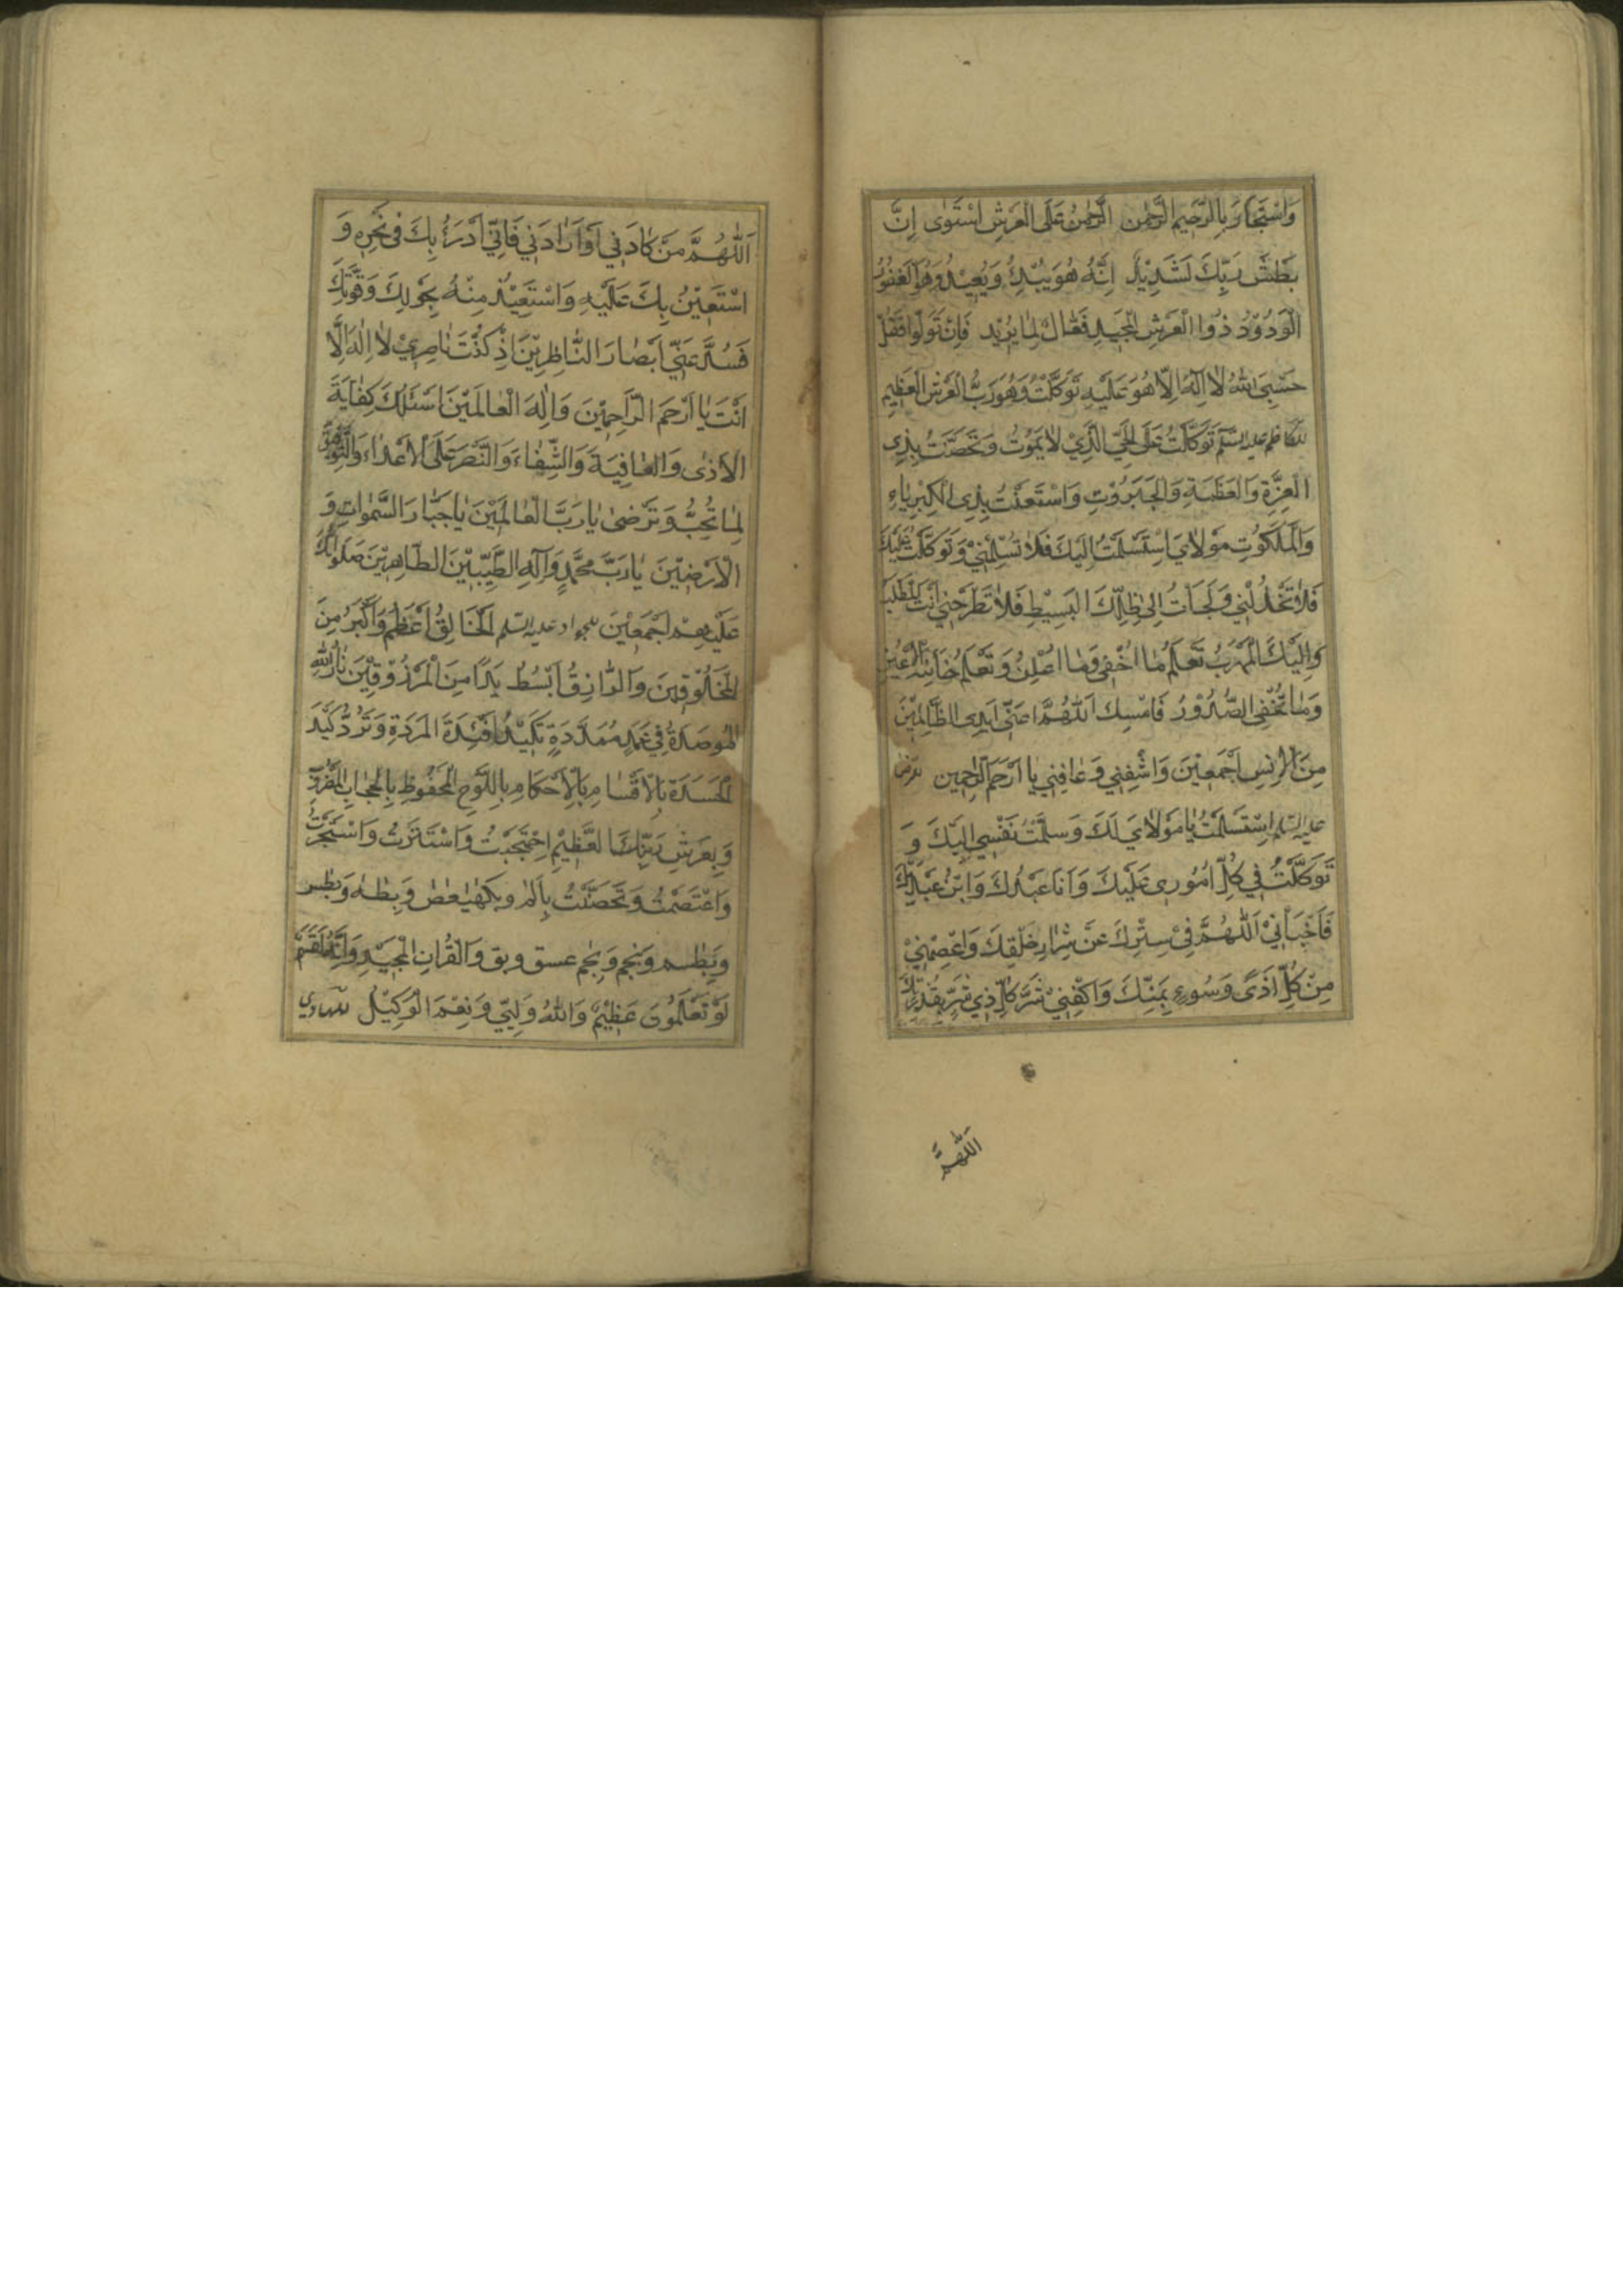 وَاسْتَجَارَ بِالرَّحِيمِ الرَّحْمٰنِ الرَّحْمٰنُ عَلَى الْعَرْشِ اسْتَوٰى اِنَّ
بَطْشَ رَبِّكَ لَشَدِيْدٌ اِنَّهُ هُوَ يُبْدِئُ وَيُعِيْدُ وَهُوَ الْغَفُوْرُ
الْوَدُوْدُ ذُوا الْعَرْشِ الْمَجِيْدِ فَعَّالٌ لِمَا يُرِيْد فَاِنْ تَوَلَّوْا فَقُلْ
حَسْبِىَ اللّٰهُ لَا اِلٰهَ اِلَّا هُوَ عَلَيْهِ تَوَكَّلْتُ وَهُوَ رَبُّ الْعَرْشِ الْعَظِيْمِ
للكاظم عليه السلم تَوَكَّلْتُ عَلَى الْحَىِّ الَّذِيْ لَا يَمُوْتُ وَتَحَصَّنْتُ بِذِى
الْعِزَّةِ وَالْعَظَمَةِ وَالْجَبَرُوْتِ وَاسْتَعَنْتُ بِذِى الْكِبْرِيَاءِ
وَالْمَلَكُوْتِ مَوْلَاىَ اِسْتَسْلَمْتُ اِلَيْكَ فَلَا تُسْلِمْنِيْ وَتَوَكَّلْتُ عَلَيْكَ
فَلَا تَخْذُلْنِى وَلَجَأْتُ اِلٰى ظِلِّكَ الْبَسِيْطِ فَلَا تَطْرَحْنِى اَنْتَ الْمَطْلَبُ
وَاِلَيْكَ الْمَهْرَبُ تَعْلَمُ مَا اُخْفِى وَمَا اُعْلِنُ وَتَعْلَمُ خَائِنَةَ الْاَعْيُنِ
وَمَا تُخْفِى الصُّدُوْرُ فَامْسِكْ اَللّٰهُمَّ عَنِّى اَيْدِى الظَّالِمِيْنَ
مِنَ الْاِنْسِ اَجْمَعِيْنَ وَاشْفِنِى وَعَافِنِى يَا اَرْحَمَ الرَّاحِمِين للرضا
عليه السلم اِسْتَسْلَمْتُ يَا مَوْلَاىَ لَكَ وَسَلَّمْتُ نَفْسِى اِلَيْكَ وَ
تَوَكَّلْتُ فِى كُلِّ اُمُوْرِى عَلَيْكَ وَاَنَا عَبْدُكَ وَابْنُ عَبْدَيْكَ
فَاَخْبَأْنِيْ اَللّٰهُمَّ فِيْ سِتْرِكَ عَنْ شِرَارِ خَلْقِكَ وَاعْصِمْنِيْ
مِنْ كُلِّ اَذًى وَسُوءٍ بِمَنِّكَ وَاكْفِنِيْ شَرَّ كُلِّ ذِى شَرٍّ بِقُدْرَتِكَ
اَللّٰهُمَّ
اَللّٰهُمَّ مَنْ كَادَنِى اَوْ اَرَادَنِى فَاِنِّى اَدْرَءُ بِكَ فِى نَحْرِهِ وَ
اَسْتَعِيْنُ بِكَ عَلَيْهِ وَاَسْتَعِيْذُ مِنْهُ بِحَوْلِكَ وَقُوَّتِكَ
فَسُدَّ عَنِّى اَبْصَارَ النَّاظِرِيْنَ اِذْ كُنْتَ نَاصِرِيْ لَا اِلٰهَ اِلَّا
اَنْتَ يَا اَرْحَمَ الرَّاحِمِيْنَ وَاِلٰهَ الْعَالَمِيْنَ اَسْئَلُكَ كِفَايَةَ
الْاَذٰى وَالْعَافِيَةَ وَالشِّفَاءَ وَالنَّصْرَ عَلَى الْاَعْدَاءِ وَالتَّوْفِيْقَ
لِمَا تُحِبُّ وَتَرْضٰى يَا رَبَّ الْعَالَمِيْنَ يَا جَبَّارَ السَّمٰوَاتِ وَ
الْاَرَضِيْنَ يَا رَبَّ مُحَمَّدٍ وَآلِهِ الطَّيِّبِيْنَ الطَّاهِرِيْنَ صَلَوَاتُكَ
عَلَيْهِمْ اَجْمَعِيْنَ للجواد عليه السلم اَلْخَالِقُ اَعْظَمُ وَاَكْبَرُ مِنَ
الْمَخْلُوْقِيْنَ وَالرَّازِقُ اَبْسَطُ يَدًا مِنَ الْمَرْزُوْقِيْنَ نَارُ اللّٰهِ
الْمُوْصَدَةُ فِى عَمَدٍ مُمَدَّدَةٍ تَكِيْدُ اَفْئِدَةَ الْمَرَدَةِ وَتَرُدُّ كَيْدَ
الْحَسَدَةِ بِالْاَقْسَامِ بِالْاَحْكَامِ بِاللَّوْحِ الْمَحْفُوْظِ بِالْحِجَابِ الْمَضْرُوْبِ
وَبِعَرْشِ رَبِّنَا الْعَظِيْمِ اِحْتَجَبْتُ وَاسْتَتَرْتُ وَاسْتَجَرْتُ
وَاعْتَصَمْتُ وَتَحَصَّنْتُ بِالم وبكهيعص وَبِطٰه وَبطسم
وَبِطسم وَبحم وَبحم عسق وبق وَالْقُرْاٰنِ الْمَجِيْدِ وَاِنَّهُ لَقَسَمٌ
لَوْ تَعْلَمُوْنَ عَظِيْمٌ وَاللّٰهُ وَلِيِّى وَنِعْمَ الْوَكِيْلُ للهادي